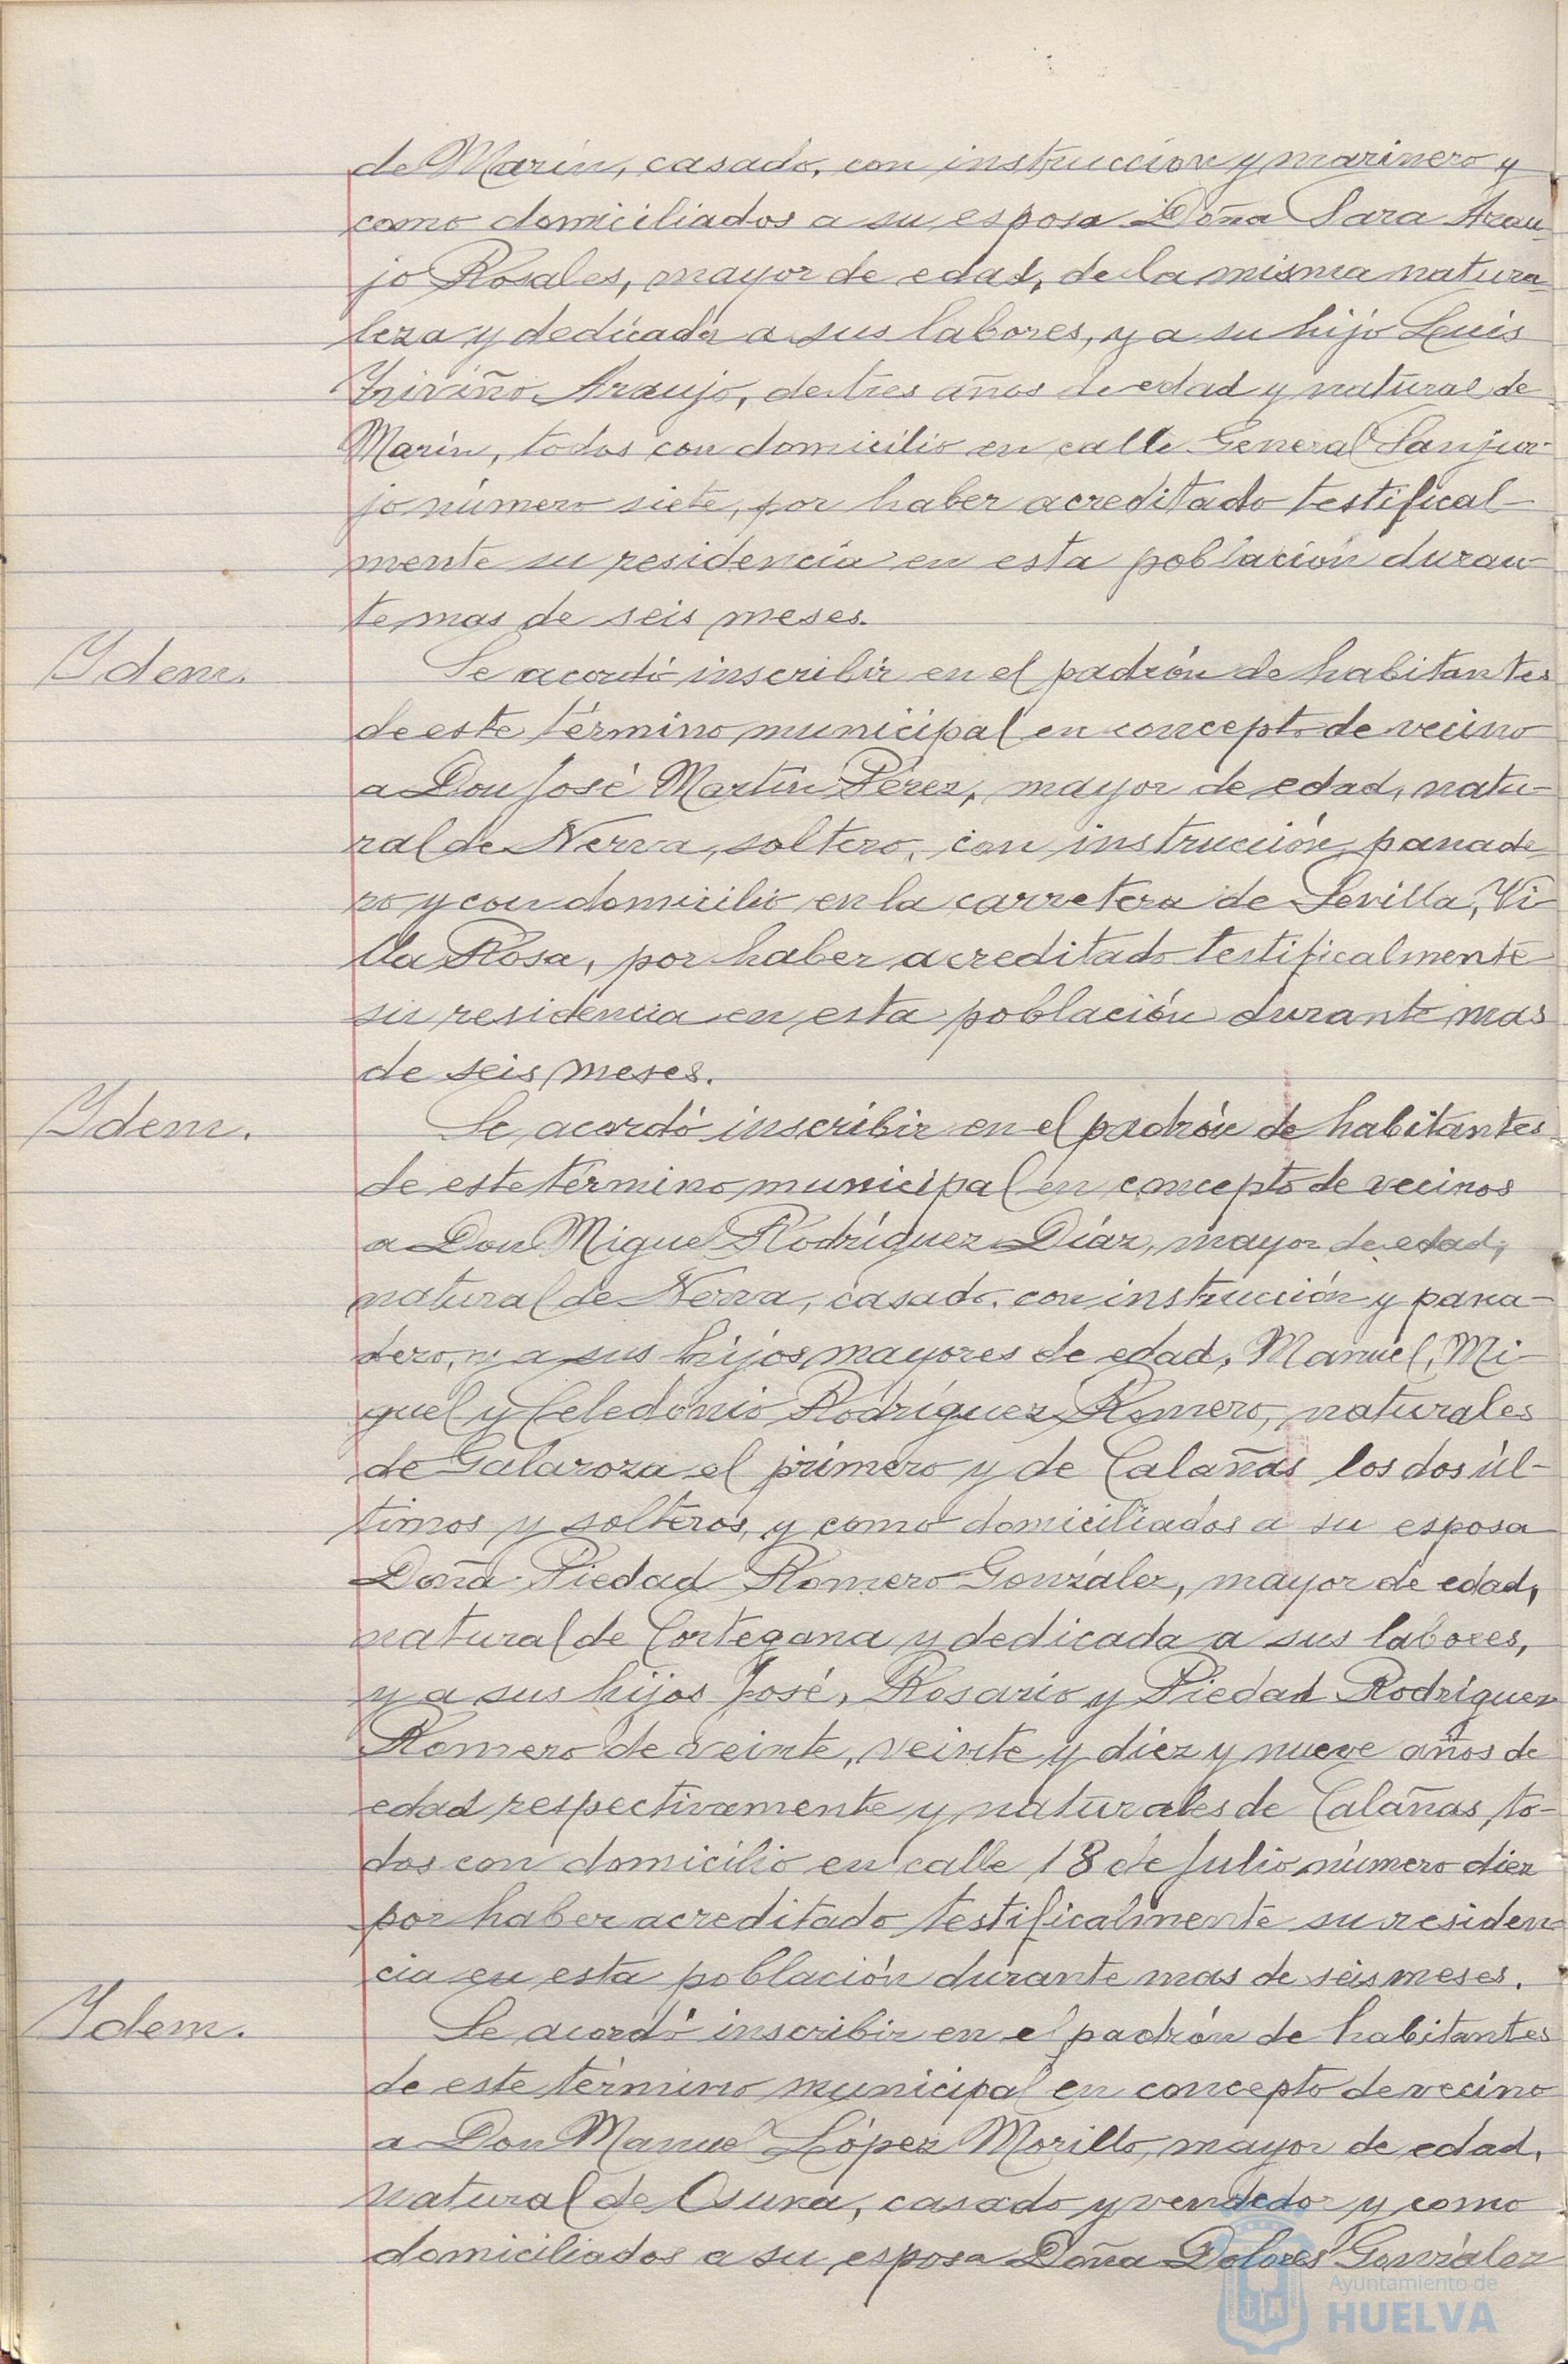 de Marin, casado, con instrucción y marinero y
como domiciliados a su esposa Doña Sara Arau-
jo Rosales, mayor de edad, de la misma natura-
leza y dedicada a sus labores, y a su hijo Luis
Triviño Araujo, de tres años de edad y natural de
Marín, todos con domicilio en calle General Sanjur-
jo número siete, por haber acreditado testifical-
mente su residencia en esta población duran-
te mas de seis meses.
Idem.
Se acordó inscribir en el padrón de habitantes
de este término municipal en concepto de vecino
a Don José Martín Pérez, mayor de edad, natu-
ral de Nerva, soltero, con instrucción, panade-
ro y con domicilio en la carretera de Sevilla, Vi-
lla Rosa, por haber acreditado testificalmente
su residencia en esta población durante mas
de seis meses.
Idem.
Se acordó inscribir en el padrón de habitantes
de este término municipal en concepto de vecinos
a Don Miguel Rodríguez Díaz, mayor de edad,
natural de Nerva, casado, con instrucción y pana-
dero, y a sus hijos mayores de edad, Manuel, Mi-
guel y Celedonio Rodríguez Romero, naturales
de Galaroza el primero y de Calañas los dos úl-
timos y solteros, y como domiciliados a su esposa
Doña Piedad Romero González, mayor de edad,
natural de Cortegana y dedicada a sus labores,
y a sus hijos José, Rosario y Piedad Rodríguez
Romero de veinte, veinte y diez y nueve años de
edad respectivamente y naturales de Calañas, to-
dos con domicilio en calle 18 de Julio número diez
por haber acreditado testificalmente su residen-
cia en esta población durante mas de seis meses.
Idem.
Se acordó inscribir en el padrón de habitantes
de este término municipal en concepto de vecino
a Don Manuel López Morillo, mayor de edad,
natural de Osuna, casado y vendedor y como
domiciliados a su esposa Doña Dolores González
Ayuntamiento de
HUELVA